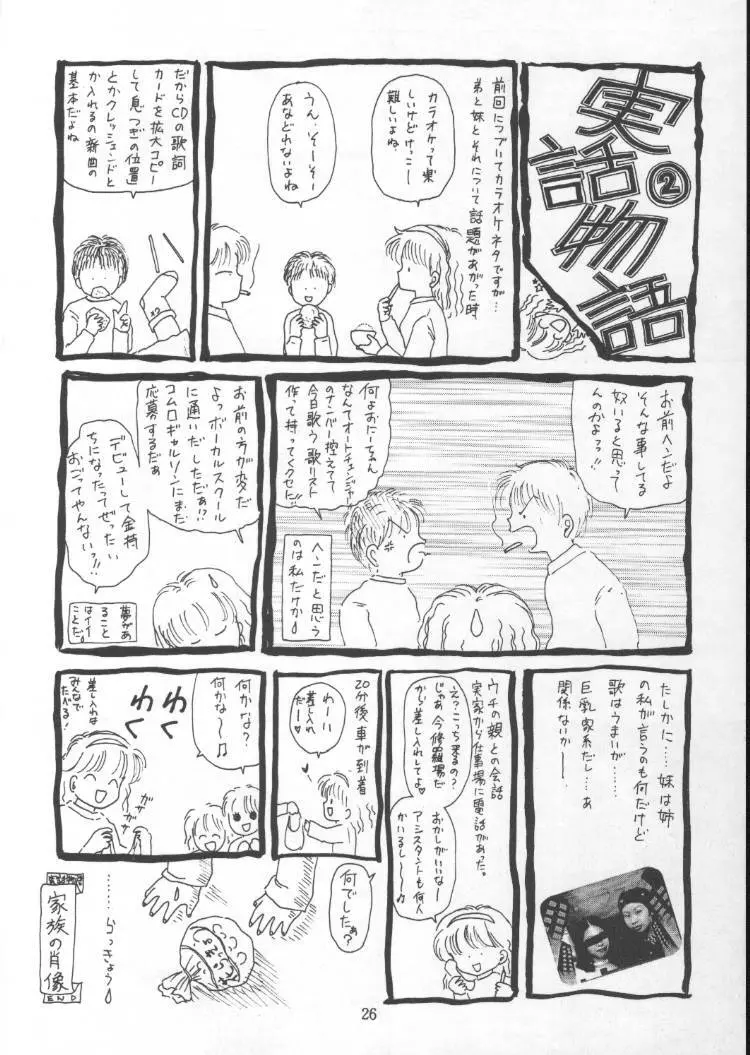 実話物語
②
前回につづいてカラオケネタですが…
弟と妹とそれについて話題があがった時
カラオケって楽
しいけどけっこー
難しいよね
うん、そーそー
あなどれないよね
だからCDの歌詞
カードを拡大コピー
して息つぎの位置
とかクレッシェンドと
か入れるの新曲の
基本だよね
お前ヘンだよ
そんな事してる
奴いると思って
んのかよっ!!
何よおにーちゃん
なんてオートチェンジャー
のナンバー控えてて
今日歌う歌リスト
作って持ってくクセに!!
ヘンだと思う
のは私だけか
お前の方が変だ
よっボーカルスクール
に通いだしただぁ!?
コムロギャルソンにまだ
応募するだぁ
デビューして金持
ちになったってぜったい
おごってやんないっ!!
夢があ
ること
はイイ
ことだ
たしかに……妹は姉
の私が言うのも何だけど
歌はうまいが……
巨乳家系だし…ぁ
関係ないかー
ウチの親との会話
実家から仕事場に電話があった。
え?こっち来るの?
じゃあ今修羅場だ
から差し入れしてよ♡
おかしがいいなー
アシスタントも何人
かいるしー〜
20分後車が到着
わーい
差し入れ
だー♡
何かな?
何かな〜♫
わく
わく
差し入れは
みんなで
たべる!
ガサ
ガサ
何でしたぁ?
……らっきょう
らっきょう
実話物語
家族の肖像
END
26